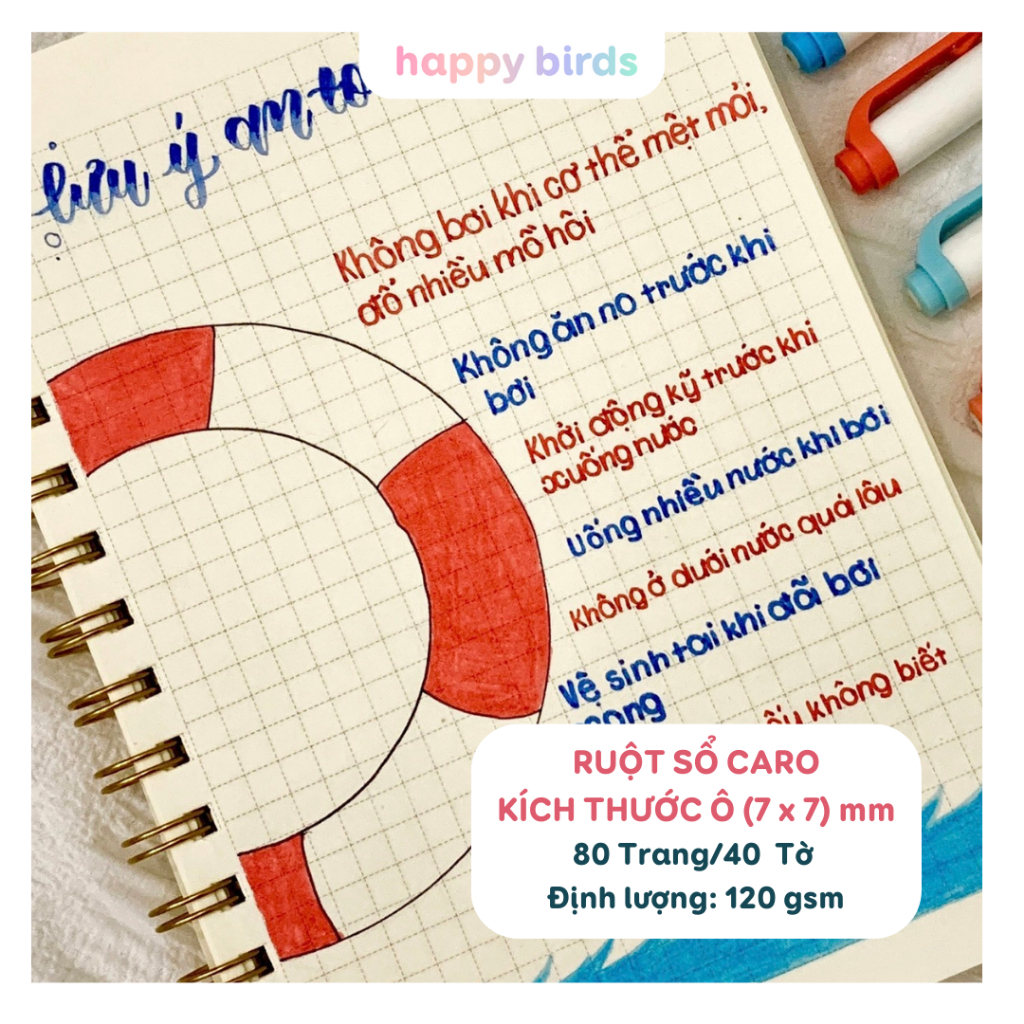 happy birds
lưu ý an to
Không bơi khi cơ thể mệt mỏi,
đổ nhiều mồ hôi
Không ăn no trước khi
bơi
Khởi động kỹ trước khi
xuống nước
uống nhiều nước khi bơi
Không ở dưới nước quá lâu
Vệ sinh tai khi đã bơi
không biết
RUỘT SỔ CARO
KÍCH THƯỚC Ô (7 x 7) mm
80 Trang/40 Tờ
Định lượng: 120 gsm